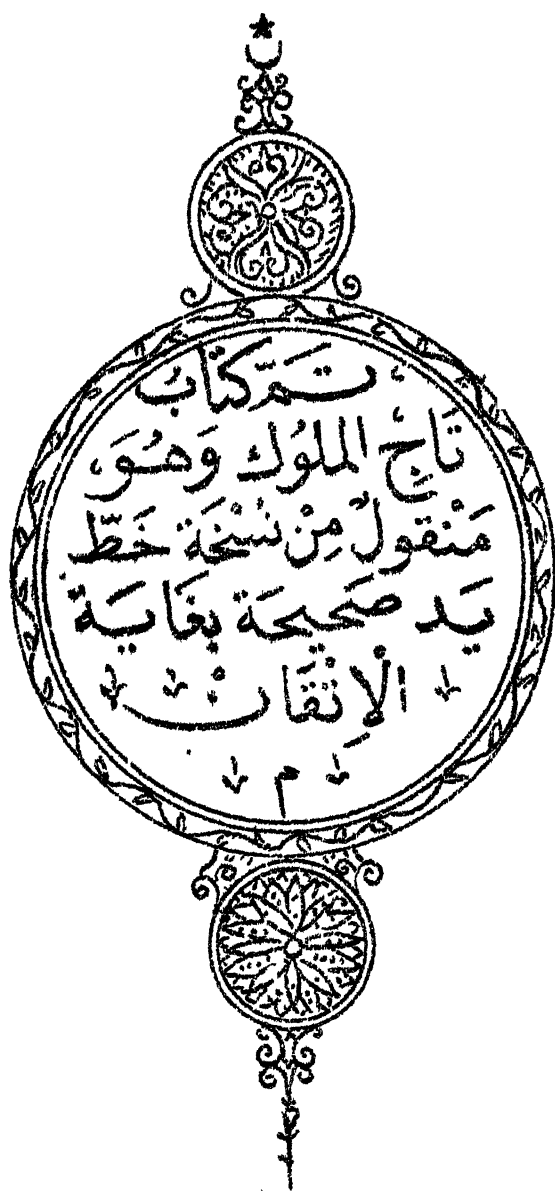 تَمَّ كِتَابُ
تَاجِ الْمُلُوكِ وَهُوَ
مَنْقُولٌ مِنْ نُسْخَةِ خَطِّ
يَد صَحِيحَة بِغَايَةِ
الْإِتْقَان
م